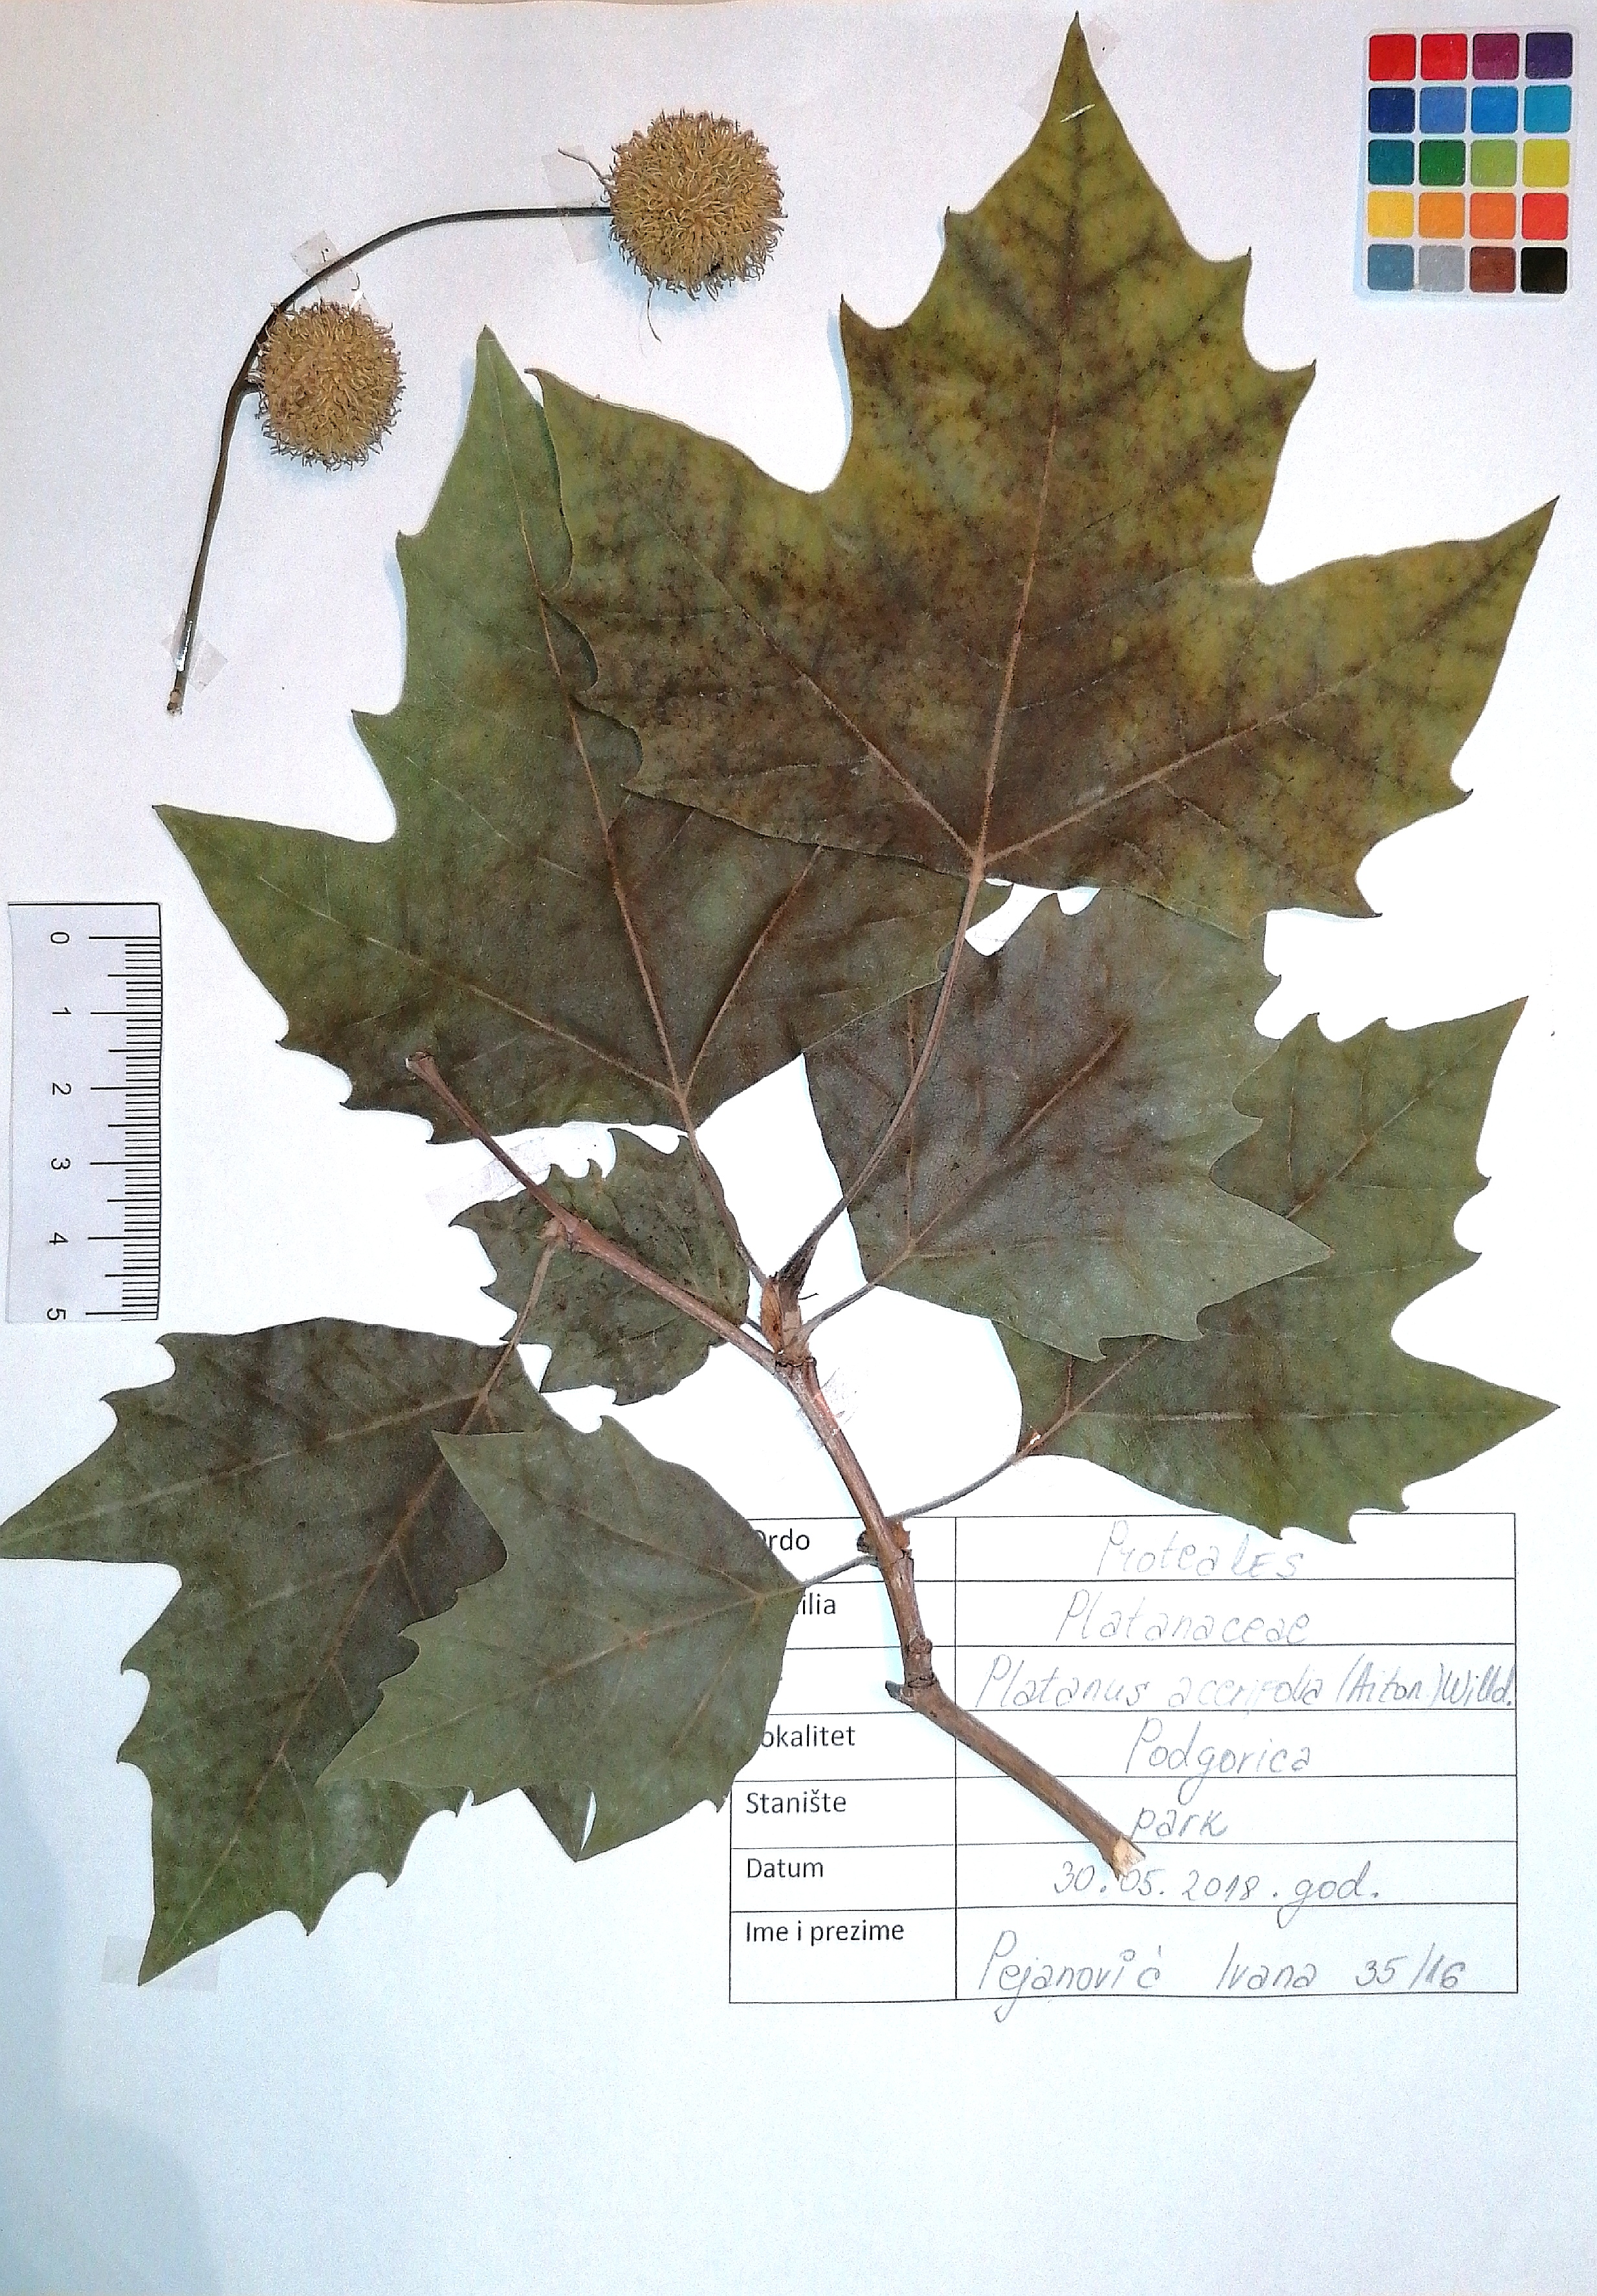 0
1
2
3
4
5
Ordo Proteales
ilia Platanaceae
Platanus acerifolia (Aiton) Willd.
okalitet Podgorica
Stanište park
Datum 30.05.2018. god.
Ime i prezime Pejanović Ivana 35/16